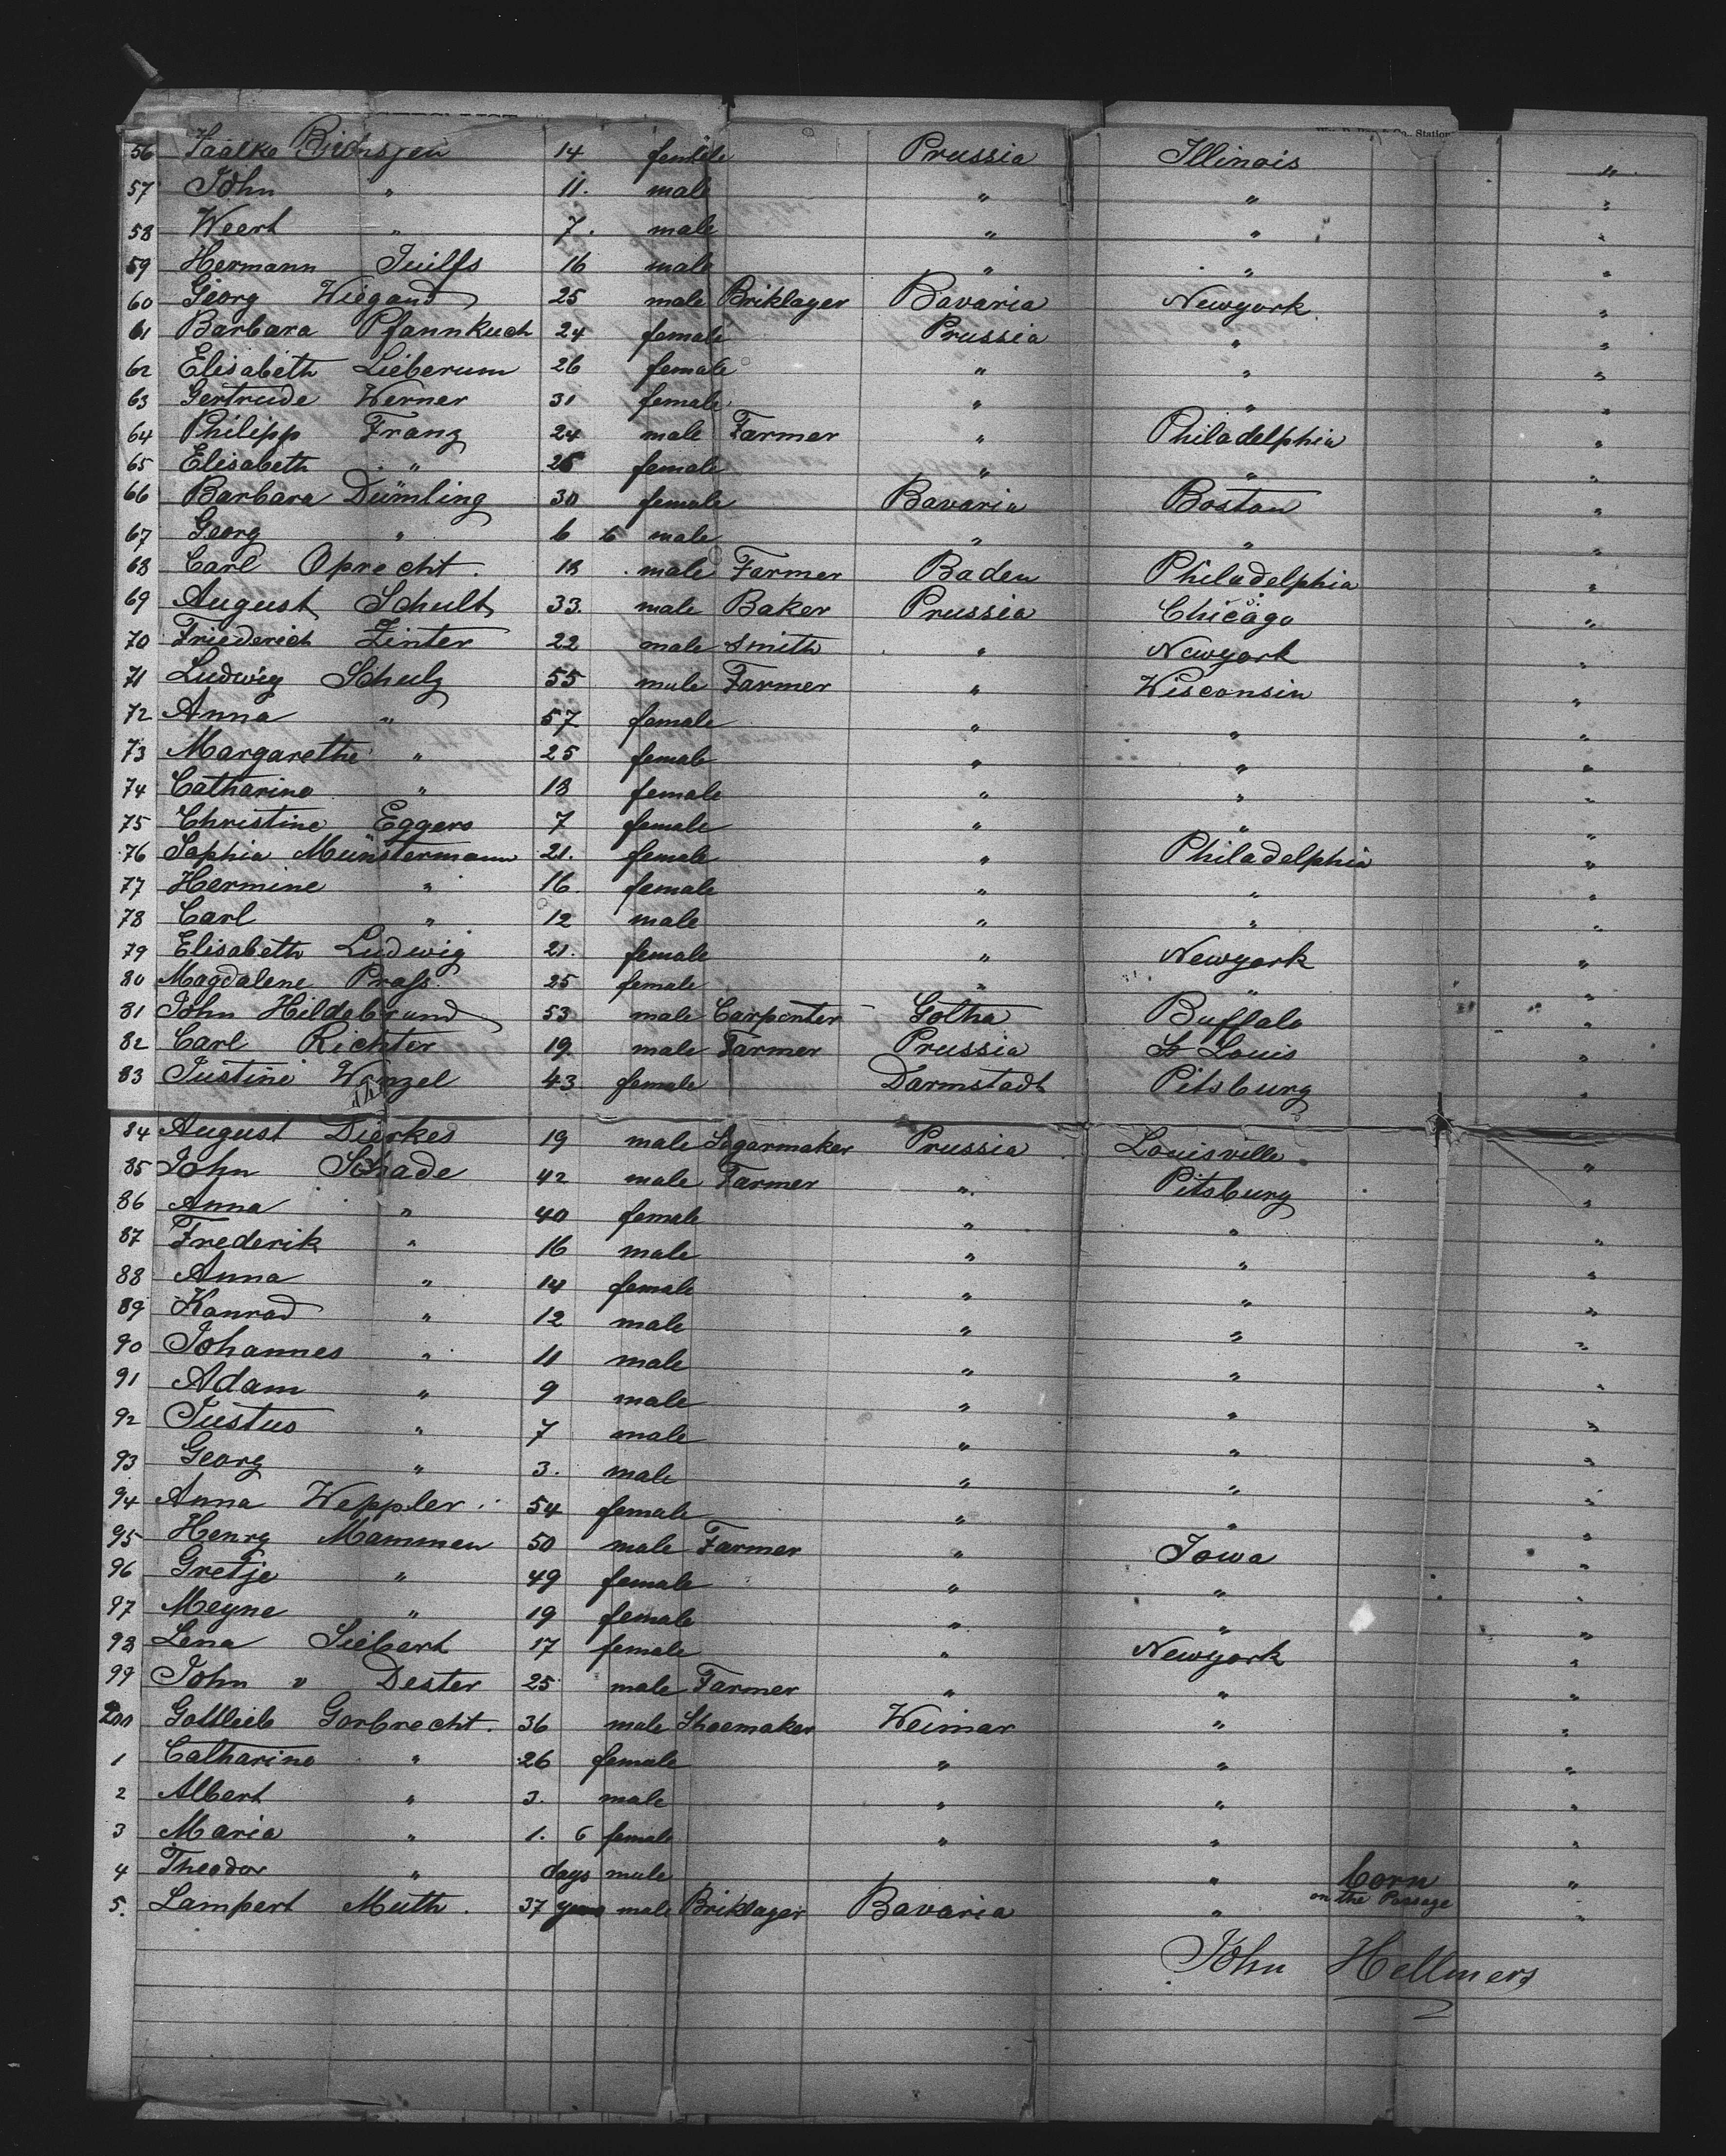 Co. Station
56 Taalke 14 female Prussia Illinois "
57 John " 11. male " " "
58 Weert " 7. male " " "
59 Hermann Juilfs 16 male " " "
60 Georg Wiegand 25 male Briklager Bavaria Newyork "
61 Barbara Pfannkuch 24 female Prussia " "
62 Elisabeth Lieberum 26 female " " "
63 Gertrude Werner 31 female " " "
64 Philipp Franz 24 male Farmer " Philadelphia "
65 Elisabeth " 26 female " " "
66 Barbara Dümling 30 female Bavaria Boston "
67 Georg " 6 6 male " " "
68 Carl Oprecht. 18 male Farmer Baden Philadelphia "
69 August Schult 33. male Baker Prussia Chicago "
70 Friederich Zinter 22 male Smith " Newyork "
71 Ludwig Schulz 55 male Farmer " Wisconsin "
72 Anna " 57 female " " "
73 Margarethe " 25 female " " "
74 Catharine " 18 female " " "
75 Christine Eggers 7 female " " "
76 Sophia Münstermann 21. female " Philadelphia "
77 Hermine " 16. female " " "
78 Carl " 12 male " " "
79 Elisabeth Ludwig 21. female " Newyork "
80 Magdalene Prass 25 female " " "
81 John Hildebrand 53 male Carpenter Gotha Buffalo "
82 Carl Richter 19. male Farmer Prussia St Louis "
83 Justine Wenzel 43 female Darmstadt Pitsburg "
84 August Dierkes 19 male Segarmaker Prussia Louisville "
85 John Schade 42 male Farmer " Pitsburg "
86 Anna " 40 female " " "
87 Frederik " 16 male " " "
88 Anna " 14 female " " "
89 Konrad " 12 male " " "
90 Johannes " 11 male " " "
91 Adam " 9 male " " "
92 Justus " 7 male " " "
93 Georg " 3. male " " "
94 Anna Weppler 54 female " " "
95 Henry Mammen 50 male Farmer " Iowa "
96 Gretje " 49 female " " "
97 Meyne " 19 female " " "
98 Lena Siebert 17 female " Newyork "
99 John v Dester 25 male Farmer " " "
200 Gottlieb Gorbrecht. 36 male Shoemaker Weimar " "
1 Catharine " 26 female " " "
2 Albert " 3. male " " "
3 Maria " 1. 6 female " " "
4 Theodor " days male " born "
on the Passage
5. Lampert Muth. 37 years male Briklager Bavaria " "
John Hellmers